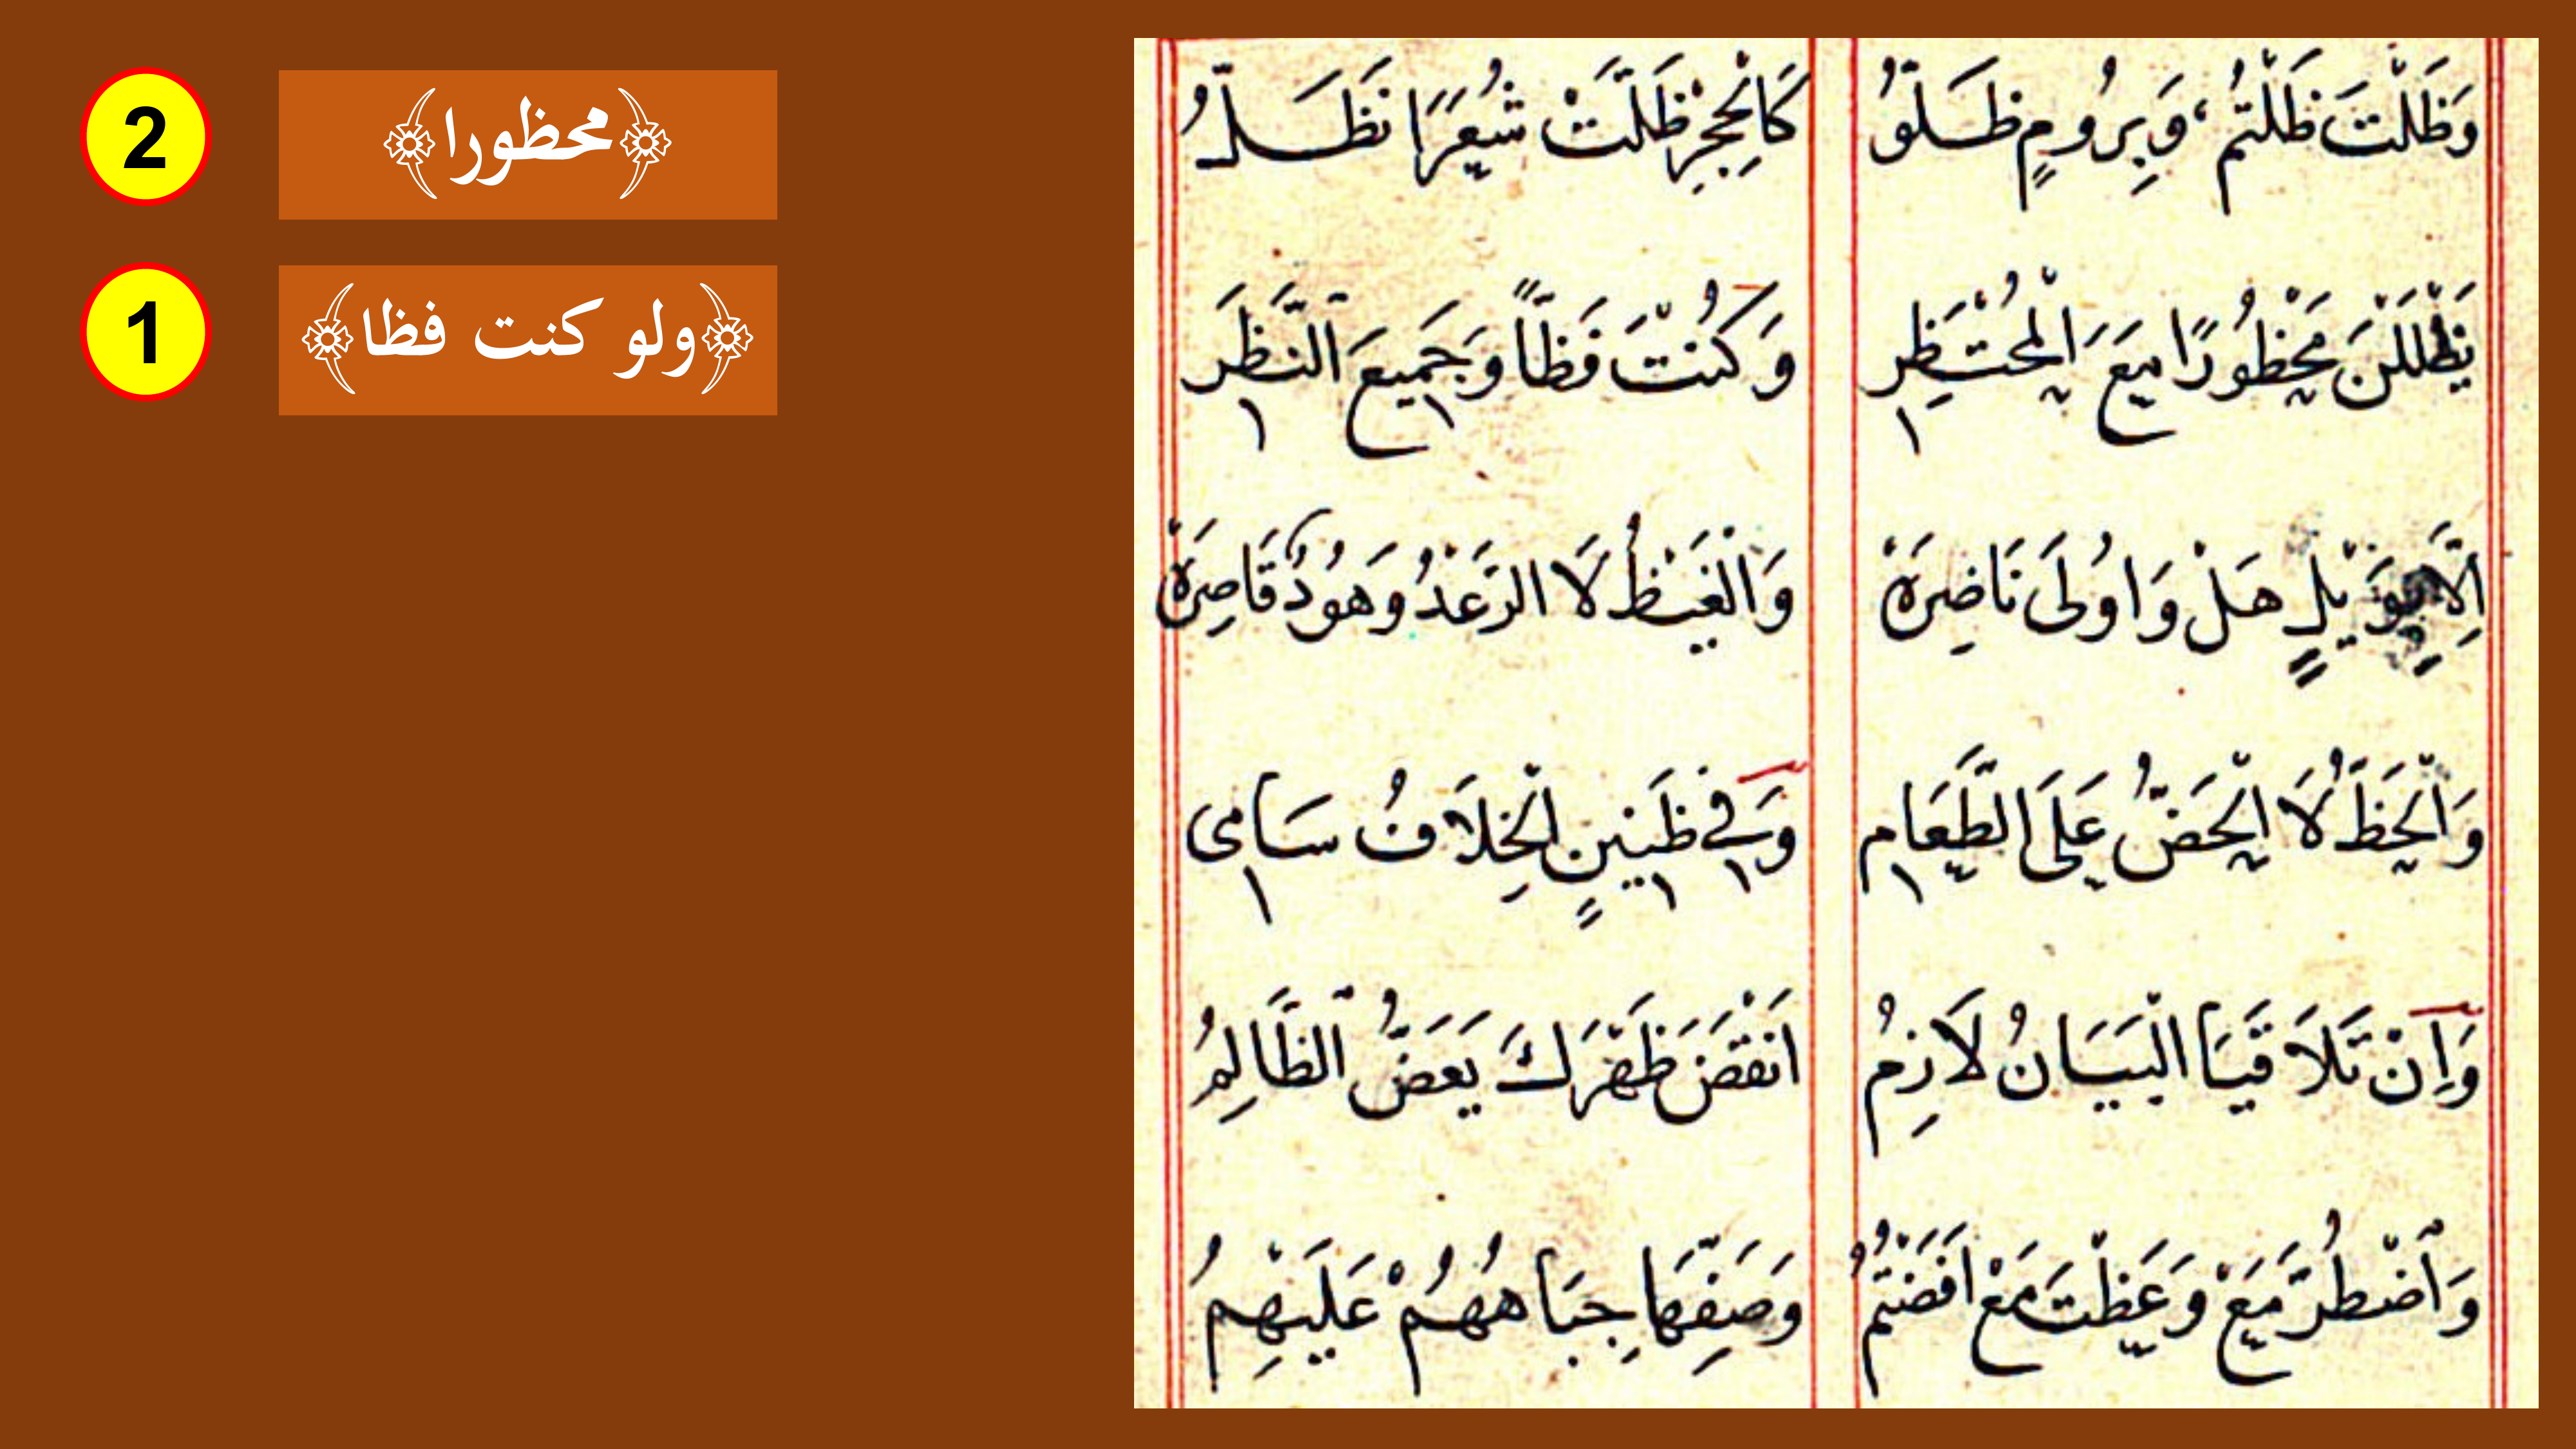 2
﴿محظورا﴾
1
﴿ولو كنت فظا﴾
وَظَلْتَ ظَلْتُمْ وَبِرُومٍ ظَلُّوا كَالْحِجْرِ ظَلَّتْ شُعَرَا نَظَلُّ
يَظْلَلْنَ مَحْظُورًا مَعَ الْمُحْتَظِرِ وَكُنْتَ فَظًّا وَجَمِيعَ النَّظَرِ
اِلَّا بِوَيْلٍ هَلْ وَاُولَى نَاضِرَهْ وَالْغَيْظُ لَا الرَّعْدُ وَهُودٌ قَاصِرَهْ
وَالْحَظُّ لَا الْحَضُّ عَلَى الطَّعَامِ وَفِي ظَنِينٍ الْخِلَافُ سَامِى
وَاِنْ تَلَاقَيَا الْبَيَانُ لَازِمُ اَنْقَضَ ظَهْرَكَ يَعَضُّ الظَّالِمُ
وَاضْطُرَّ مَعْ وَعَظْتَ مَعْ اَفَضْتُمُ وَصَفِّ هَا جِبَاهُهُمْ عَلَيْهِمُ